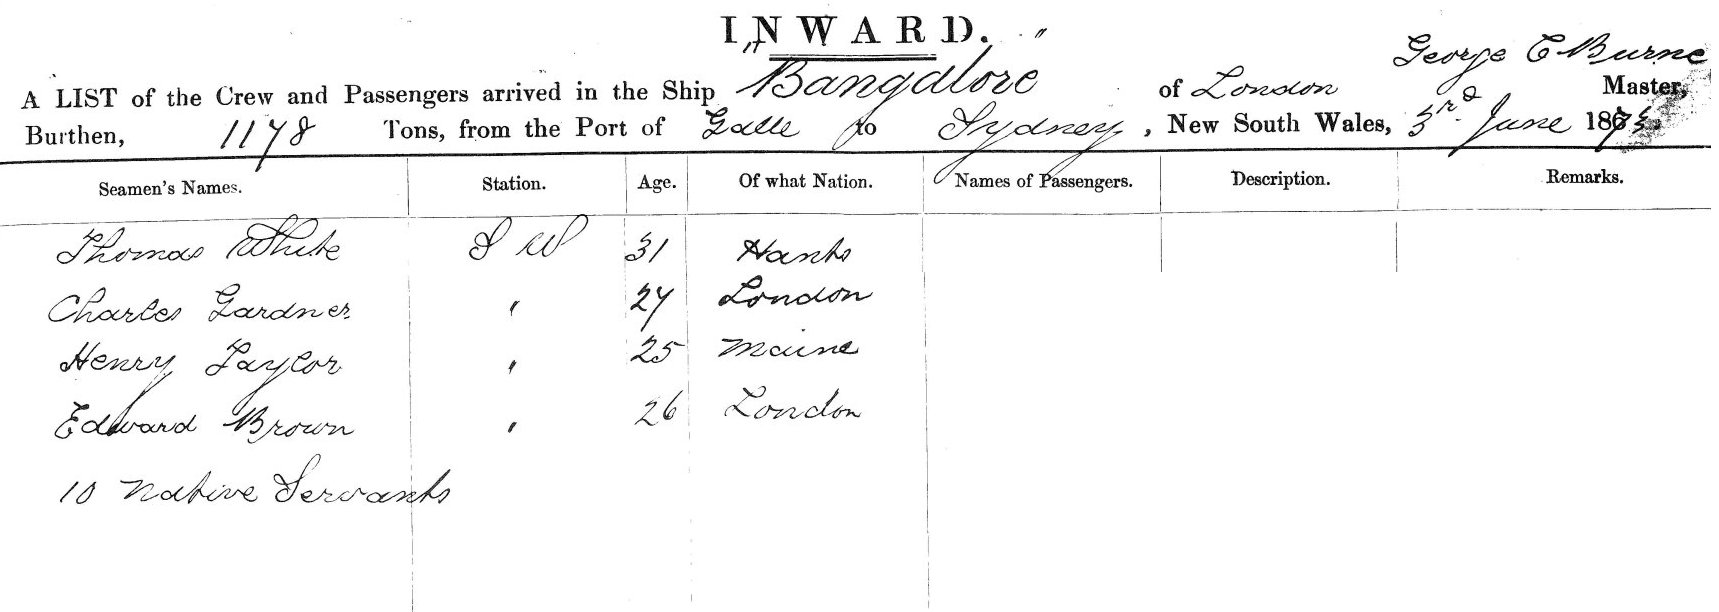 INWARD.
George E Burne
A LIST of the Crew and Passengers arrived in the Ship "Bangalore" of London Master,
Burthen, 1178 Tons, from the Port of Galle to Sydney, New South Wales, 3rd June 1873
Seamen's Names. Station. Age. Of what Nation. Names of Passengers. Description. Remarks.
Thomas White S W 31 Hants
Charles Gardner " 27 London
Henry Taylor " 25 Maine
Edward Brown " 26 London
10 Native Servants